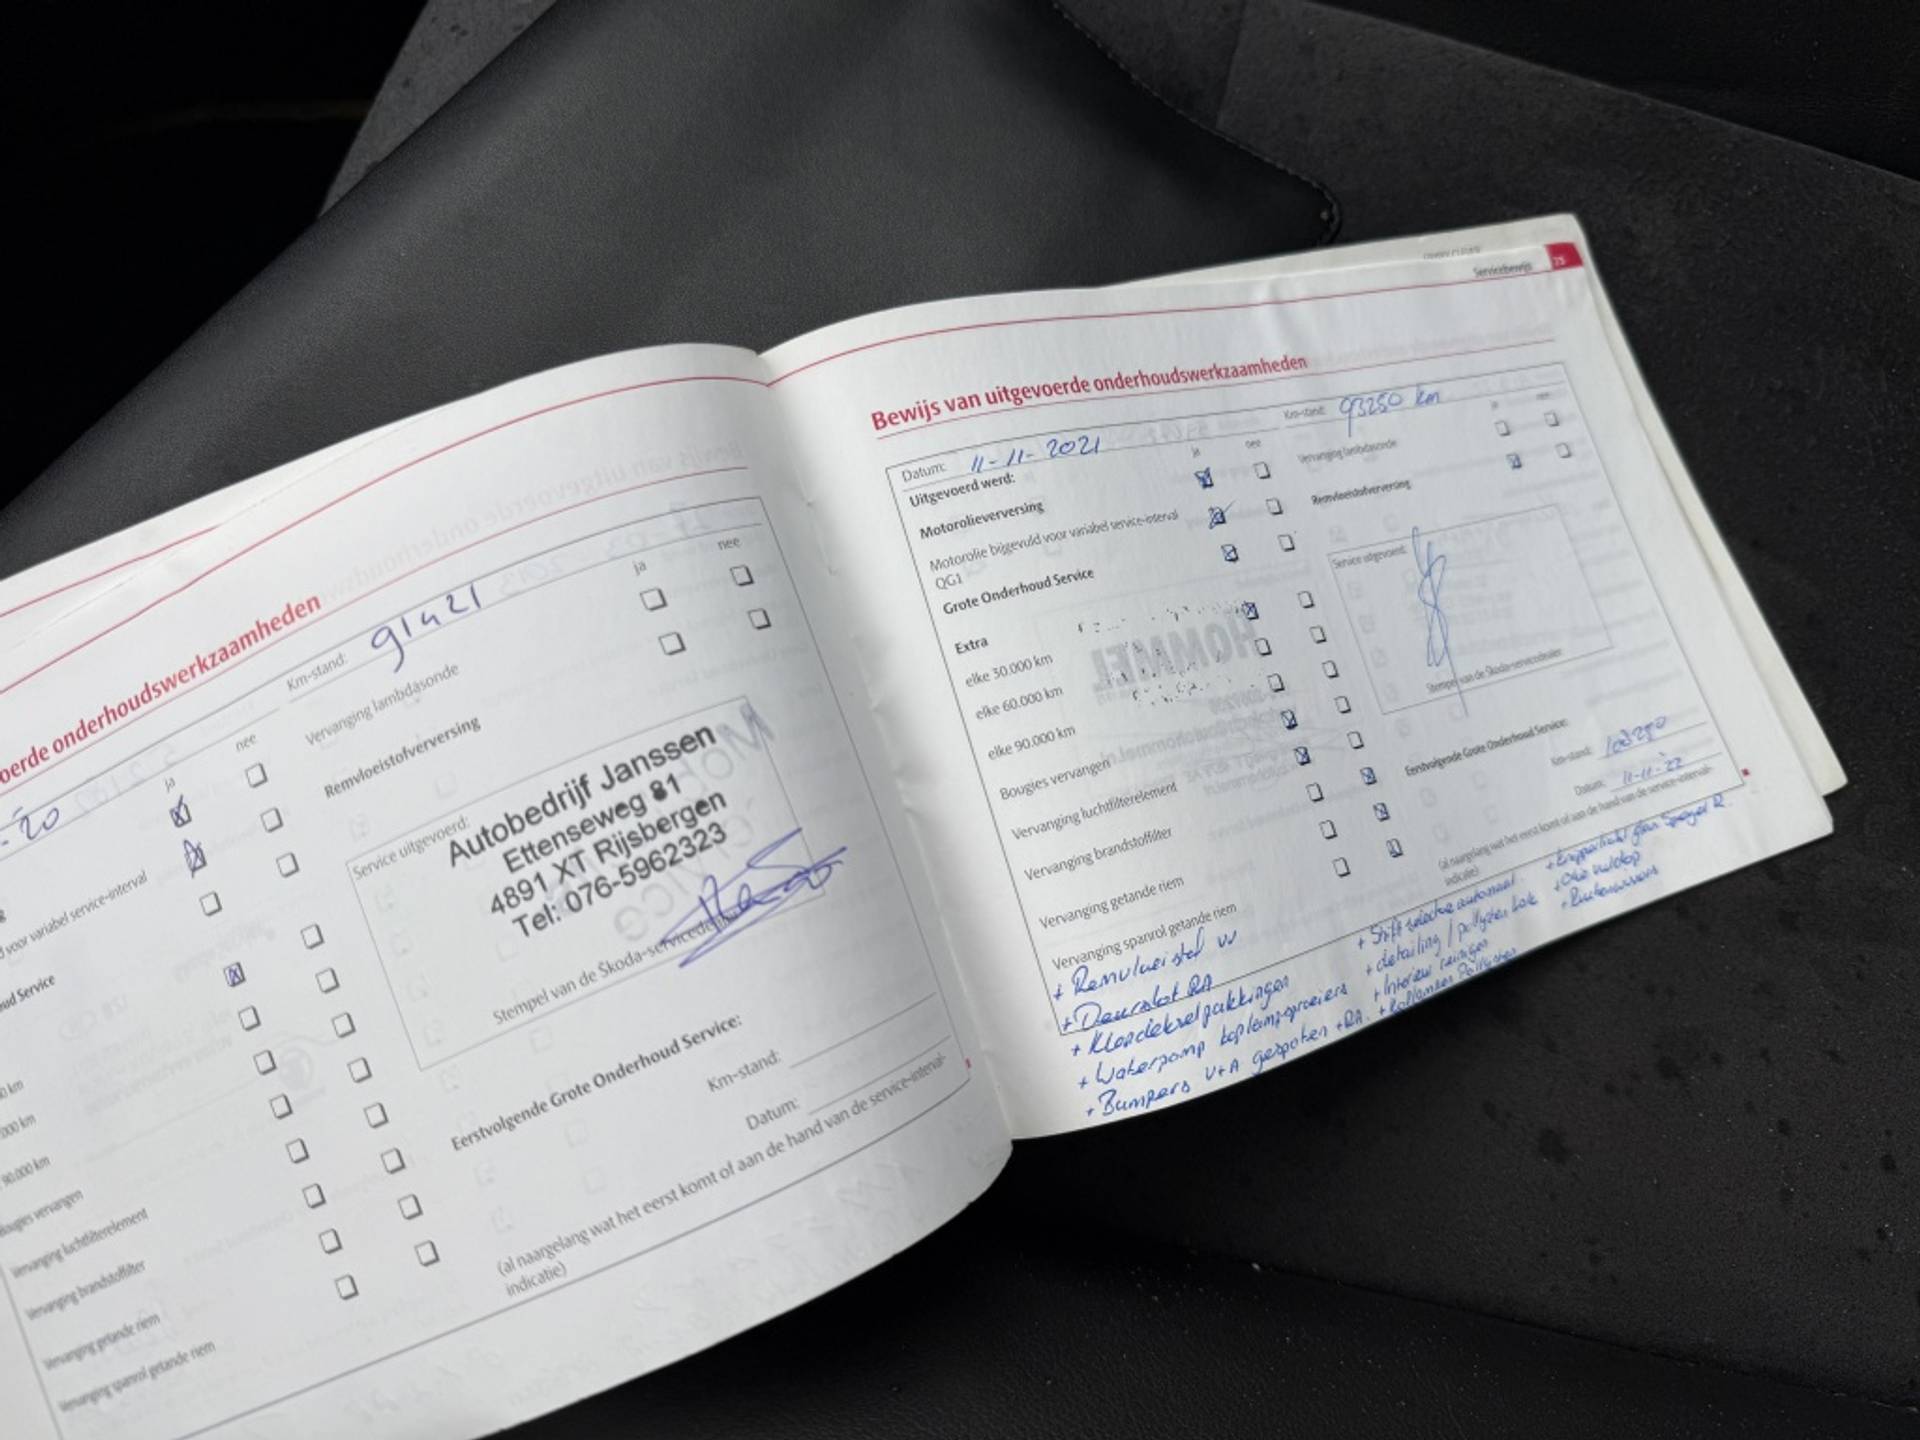 oerde onderhoudswerkzaamheden
-20
Km-stand: 91421
ja nee
Vervanging lambdasonde
ja nee
Remvloeistofverversing
d voor variabel service-interval
oud Service
Service uitgevoerd:
Autobedrijf Janssen
Ettenseweg 81
4891 XT Rijsbergen
Tel: 076-5962323
Stempel van de Škoda-servicedealer
0 km
000 km
90.000 km
Bougies vervangen
Vervanging luchtfilterelement
Vervanging brandstoffilter
Vervanging getande riem
Vervanging spanrol getande riem
Eerstvolgende Grote Onderhoud Service:
Km-stand:
Datum:
(al naargelang wat het eerst komt of aan de hand van de service-interval-
indicatie)
Servicebewijs 75
Bewijs van uitgevoerde onderhoudswerkzaamheden
Datum: 11-11-2021
Km-stand: 93250 km
Uitgevoerd werd:
ja nee
Motorolieverversing
Motorolie bijgevuld voor variabel service-interval
QG1
Grote Onderhoud Service
Extra
elke 30.000 km
elke 60.000 km
elke 90.000 km
Bougies vervangen
Vervanging luchtfilterelement
Vervanging brandstoffilter
Vervanging getande riem
Vervanging spanrol getande riem
ja nee
Vervanging lambdasonde
Remvloeistofverversing
Service uitgevoerd:
Stempel van de Škoda-servicedealer
Eerstvolgende Grote Onderhoud Service:
Km-stand:
Datum: 11-11-22
(al naargelang wat het eerst komt of aan de hand van de service-interval-
indicatie)
+ Deurslot RA
+ Klepdekselpakkingen
+ Waterpomp koplampsproeiers
+ Bumpers V+A gespoten + RA.
+ detailing /
+ Interieur reinigen
+ Koplampen Polijsten
+ Ruitenwissers